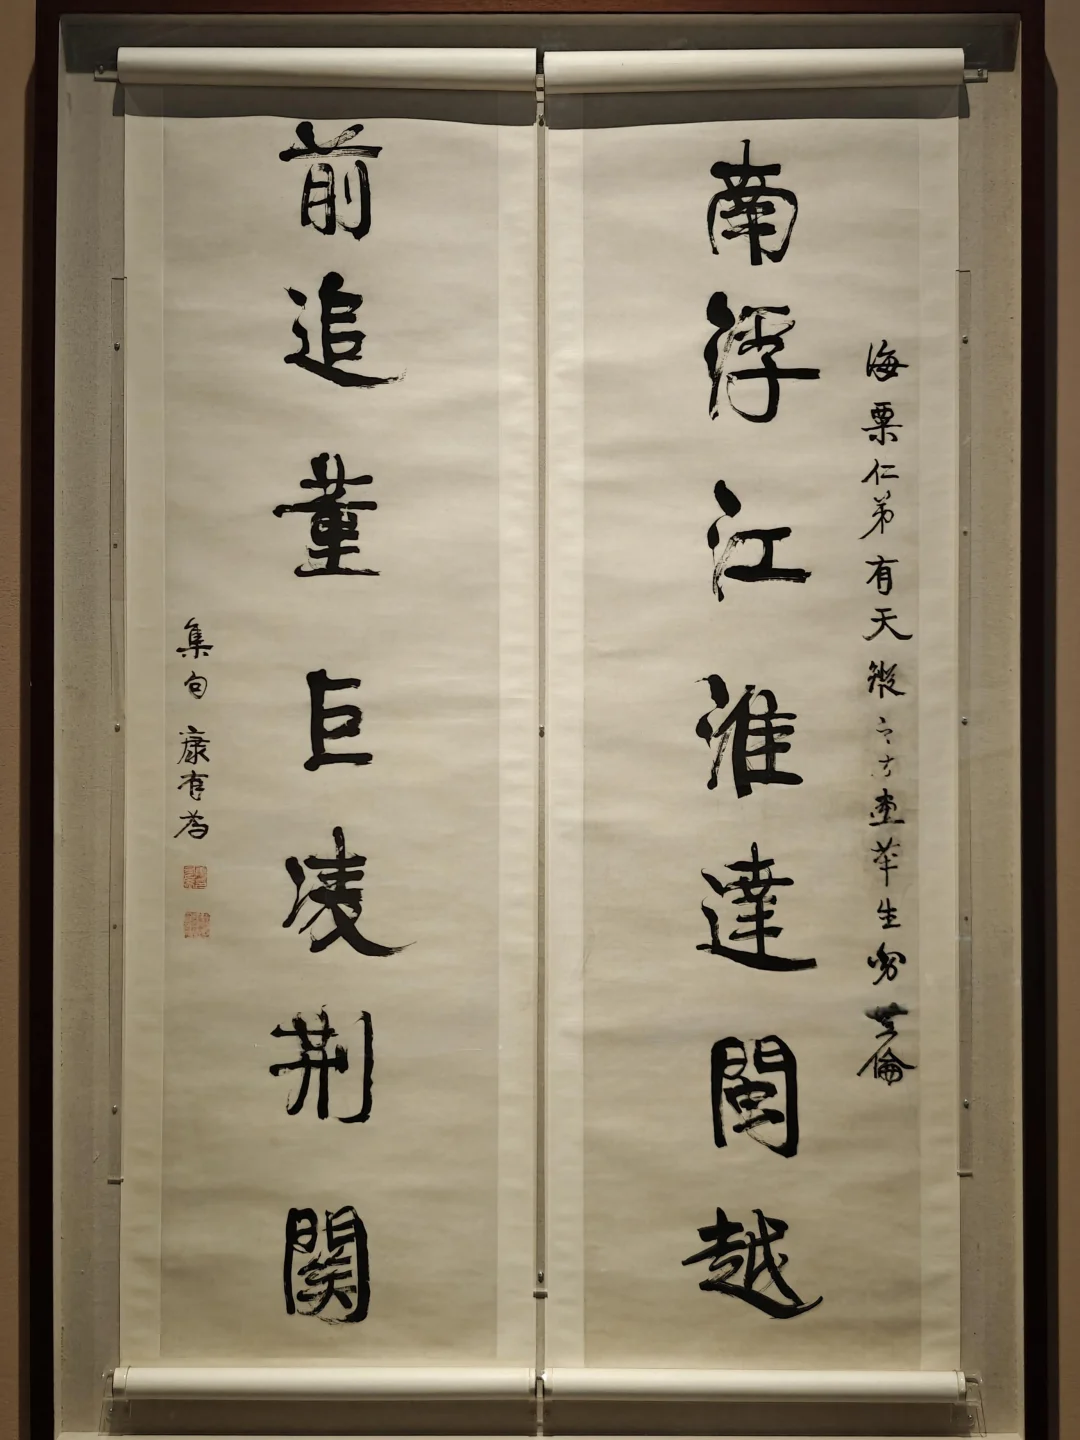 海粟仁弟有天縱之 畫 生 倫
南浮江淮達閩越
前追董巨凌荆關
集句 康有為